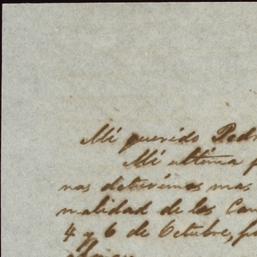 Mi querido Pedr
Mi ultima p
nos detuvimos mas
nalidad de los Can
4 y 6 de Octubre, fa